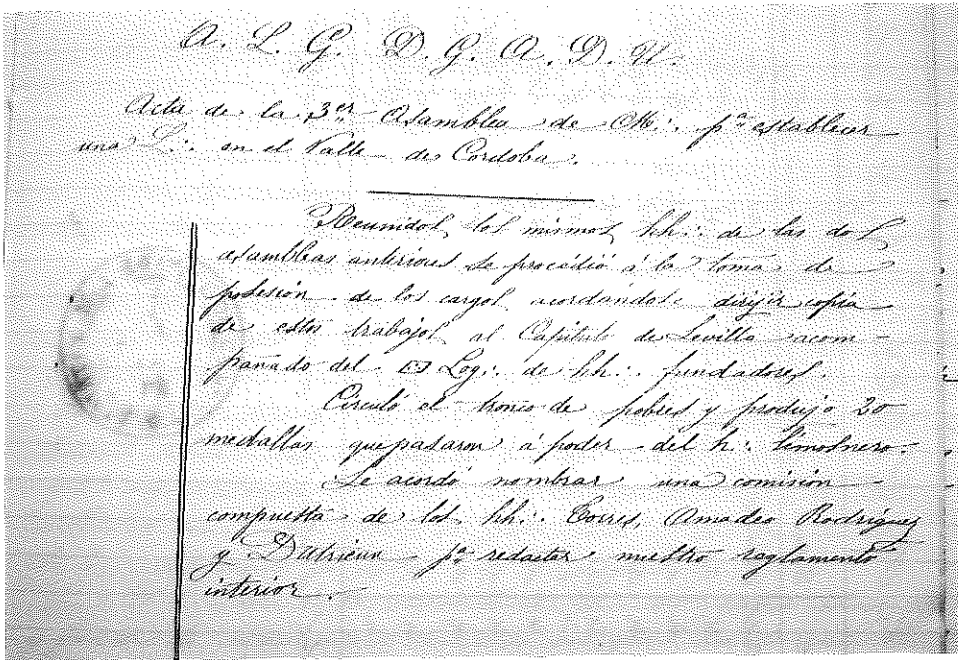 A. L. G. D. G. A. D. U.
Acta de la 3er Asamblea de MM∴ pa establecer
una L∴ en el Valle de Cordoba.
Reunidos los mismos hh∴ de las dos
asambleas anteriores se procedió á la toma de
posesión de los cargos acordandose dirijir copia
de estos trabajos al Capitulo de Sevilla acom-
pañado del Log∴ de hh∴ fundadores.
Circuló el tronco de pobres y produjo 20
medallas que pasaron á poder del h∴ limosnero.
Se acordó nombrar una comisión
compuesta de los hh∴ Torres, Amadeo Rodriguez
y pa redactar nuestro reglamento
interior.